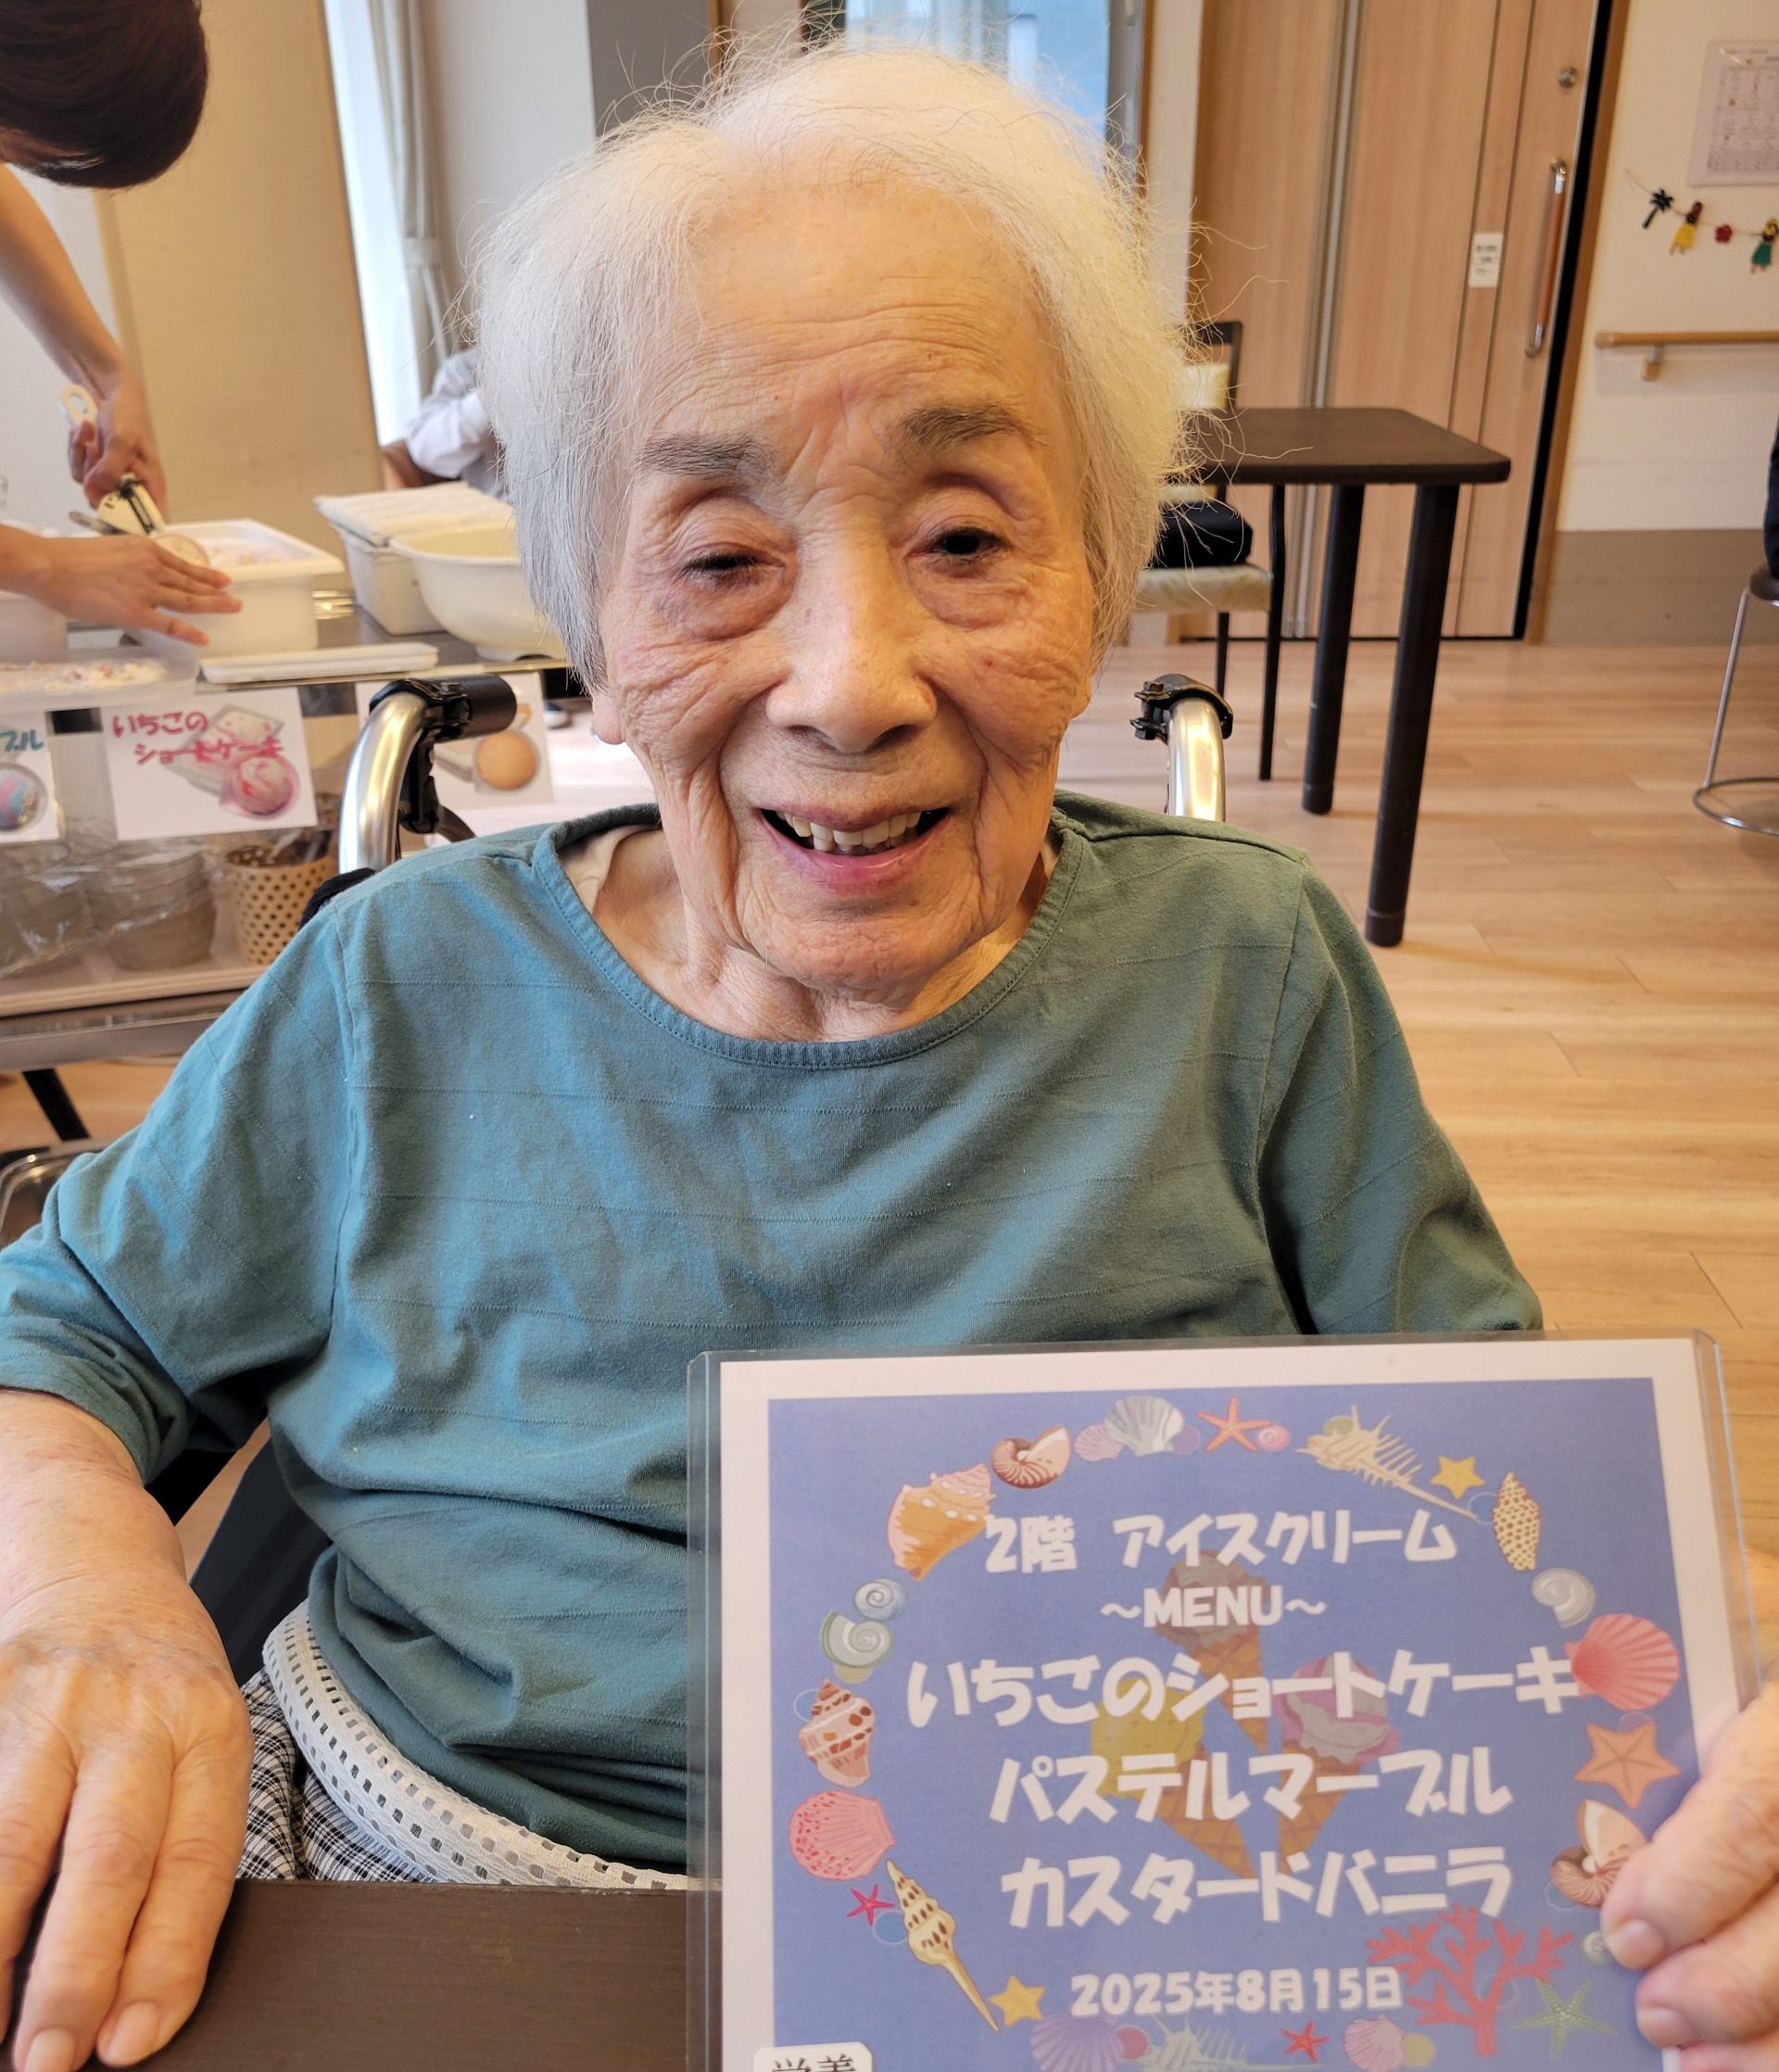 ブル
いちごの
ショートケーキ
2階 アイスクリーム
～MENU～
いちごのショートケーキ
パステルマーブル
カスタードバニラ
2025年8月15日
栄養